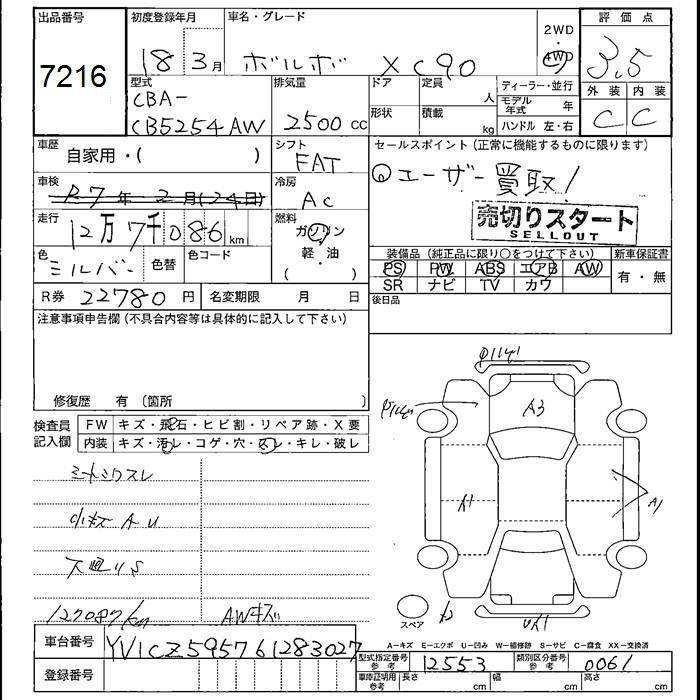 出品番号
7216
初度登録年月
18 3月
車名・グレード
ボルボ XC90
2WD
・
4WD
評価点
3.5
外装 内装
C C
型式
CBA-
CB5254AW
排気量
2500 cc
ドア
定員
人
形状
積載
kg
ディーラー・並行
モデル年式 年
ハンドル 左・右
車歴
自家用・( )
シフト
FAT
車検
R7年2月(24日)
冷房
AC
走行
12万7千086km
燃料
ガソリン
軽・油
( )
色
シルバー
色替
色コード
R券 22780円
名変期限 月 日
セールスポイント (正常に機能するものに限ります)
ユーザー買取!
売切りスタート
SELLOUT
装備品 (純正品に限り○をつけて下さい)
新車保証書
PS PW ABS エアB AW
SR ナビ TV カワ
有・無
後日品
注意事項申告欄 (不具合内容等は具体的に記入して下さい)
修復歴 有 〔箇所 〕
検査員
記入欄
FW キズ・飛石・ヒビ割・リペア跡・X要
内装 キズ・汚レ・コゲ・穴・スレ・キレ・破レ
シートシワスレ
小キズ A U
下回りS
127087km
AWキズ
A3
A1
A1
スペア
A-キズ E-エクボ U-凹み W-補修跡 S-サビ C-腐食 XX-交換済
車台番号
YV1CZ595761283027
登録番号
型式指定番号
参考
12553
類別区分番号
参考
0061
車庫証明用
参考
長さ cm
幅 cm
高さ cm